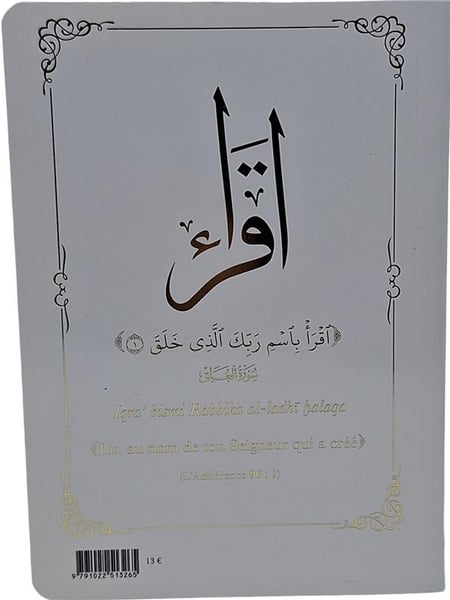 اقرأ
﴿ اقْرَأْ بِاسْمِ رَبِّكَ الَّذِي خَلَقَ ۝١ ﴾
سُورَةُ العَلَقِ
Iqra' bismi Rabbika al-ladhī ḫalaqa
﴾Lis, au nom de ton Seigneur qui a créé﴿
(L'Adhérence 96 : 1)
13 €
9 791022 513265